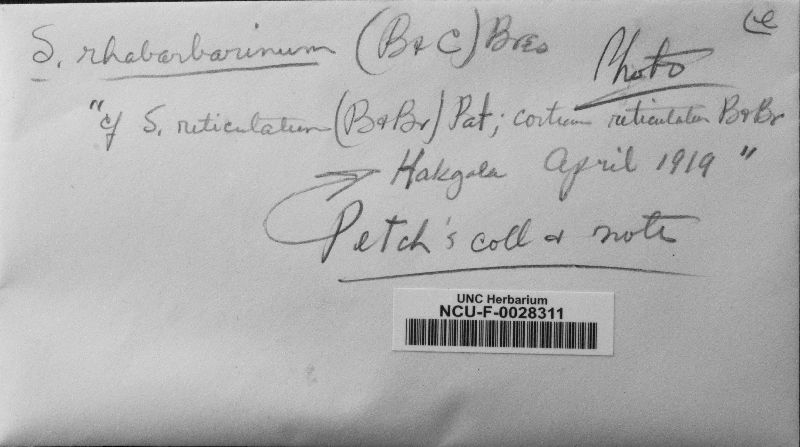 S. rhabarbarinum (B & C) Bres
Photo
"cf S. reticulatum (B & Br) Pat; corticium reticulatum B & Br
Hakgala April 1919"
Petch's coll & note
UNC Herbarium
NCU-F-0028311